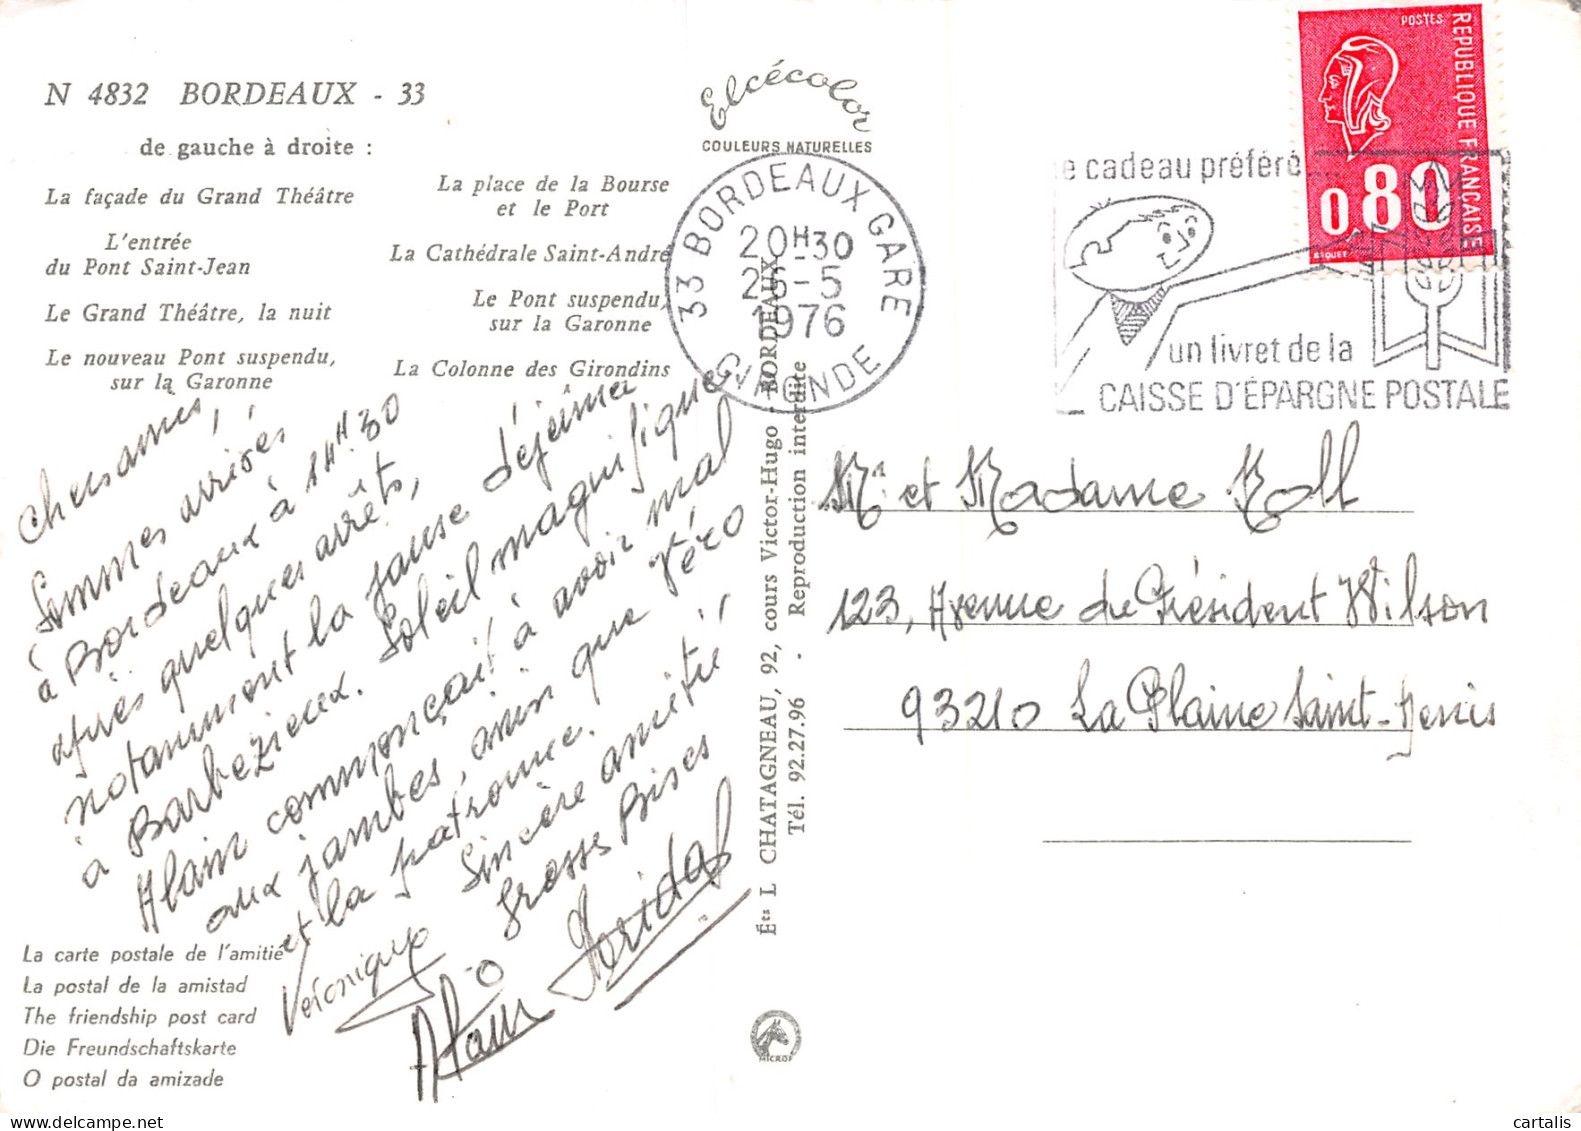 N 4832 BORDEAUX - 33
de gauche à droite :
La façade du Grand Théâtre
L'entrée
du Pont Saint-Jean
Le Grand Théâtre, la nuit
Le nouveau Pont suspendu,
sur la Garonne
La place de la Bourse
et le Port
La Cathédrale Saint-André
Le Pont suspendu,
sur la Garonne
La Colonne des Girondins
Chers amis,
Sommes arrivés
à Bordeaux à 14H30
après quelques arrêts,
notamment la pause déjeuner
à Barbezieux. Soleil magnifique
Alain commençait à avoir mal
aux jambes, ainsi que Véro
et la patronne.
Sincère amitié
Grosses Bises
Véronique
Alain
La carte postale de l'amitié
La postal de la amistad
The friendship post card
Die Freundschaftskarte
O postal da amizade
Elcécolor
COULEURS NATURELLES
33 BORDEAUX GARE
20H30
26-5
1976
GIRONDE
Éts L CHATAGNEAU, 92, cours Victor-Hugo BORDEAUX
Tél. 92.27.96 - Reproduction interdite
MICRO
e cadeau préféré...
un livret de la
CAISSE D'ÉPARGNE POSTALE
POSTES
REPUBLIQUE FRANCAISE
0,80
BEQUET
Mr et Madame Koll
123, Avenue du Président Wilson
93210 La Plaine Saint-Denis
cartalis.com